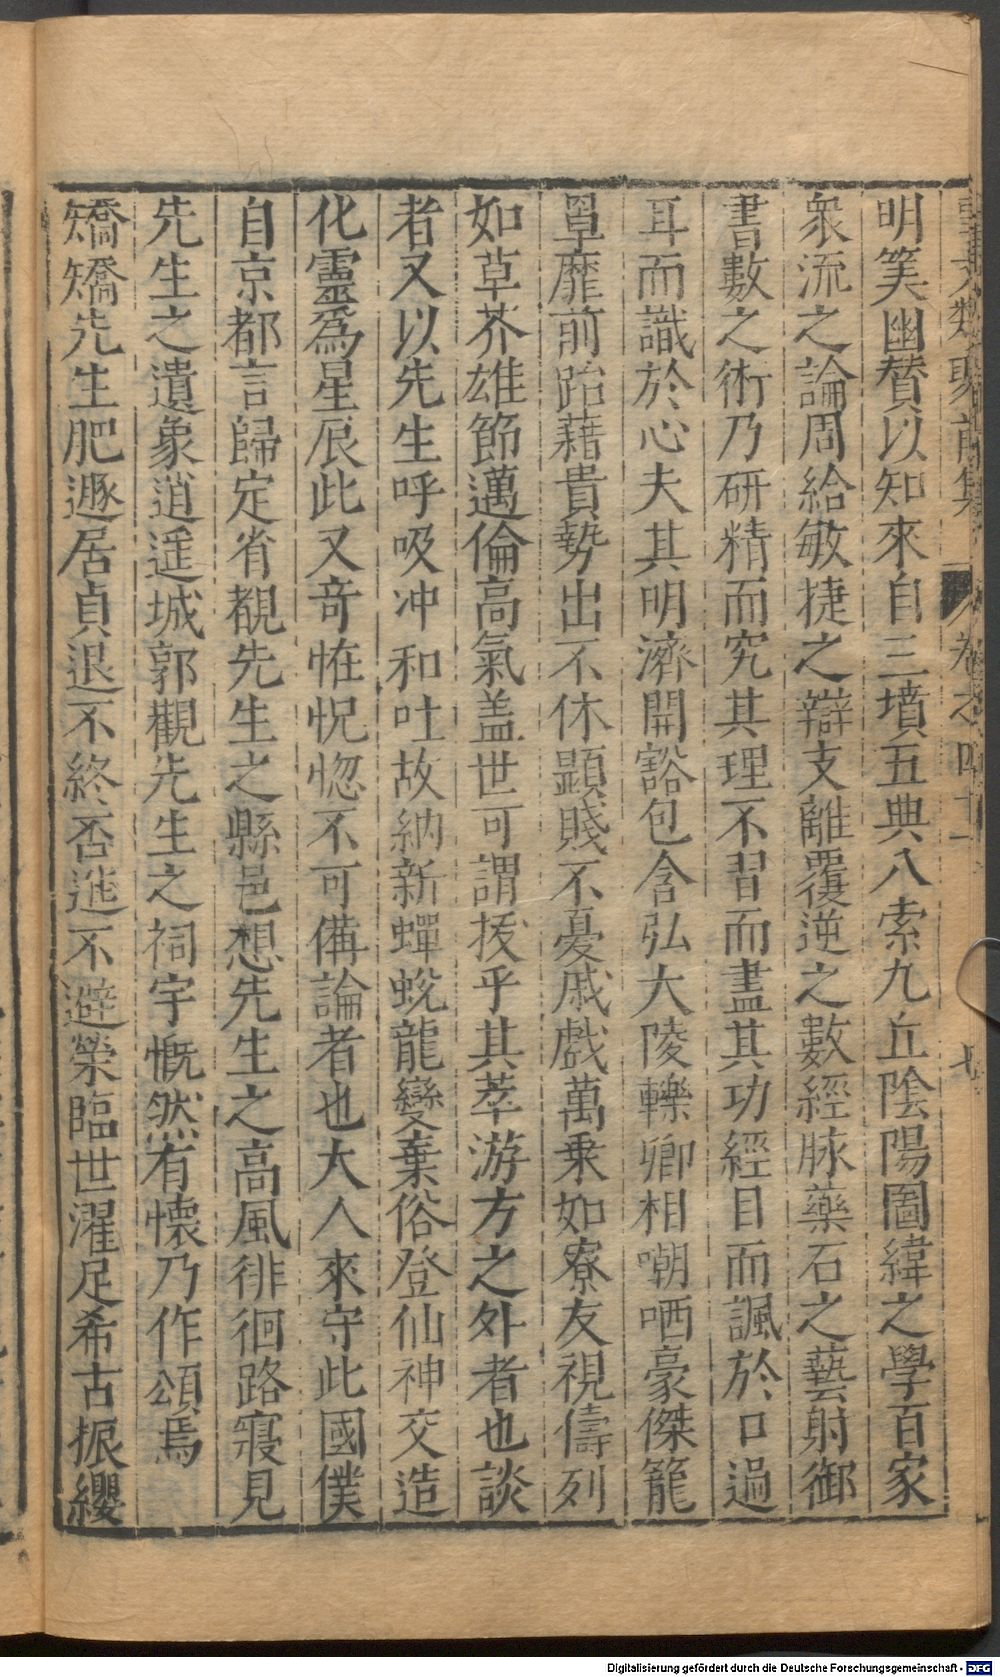 事文類聚前集 卷之四十一 七
明筭幽贊以知來自三墳五典八索九丘陰陽圖緯之學百家
衆流之論周給敏捷之辯支離覆逆之數經脉藥石之藝射御
書數之術乃研精而究其理不習而盡其功經目而諷於口過
耳而識於心夫其明濟開豁包含弘大陵轢卿相嘲哂豪傑籠
罩靡前跆藉貴勢出不休顯賤不憂戚戲萬乗如寮友視儔列
如草芥雄節邁倫高氣盖世可謂拔乎其萃游方之外者也談
者又以先生呼吸冲和吐故納新蟬蛻龍變棄俗登仙神交造
化靈爲星辰此又奇恠怳惚不可備論者也大人來守此國僕
自京都言歸定省覩先生之縣邑想先生之高風徘徊路寢見
先生之遺象逍遥城郭觀先生之祠宇慨然有懷乃作頌焉
矯矯先生肥遯居貞退不終否進不避榮臨世濯足希古振纓
Digitalisierung gefördert durch die Deutsche Forschungsgemeinschaft - DFG